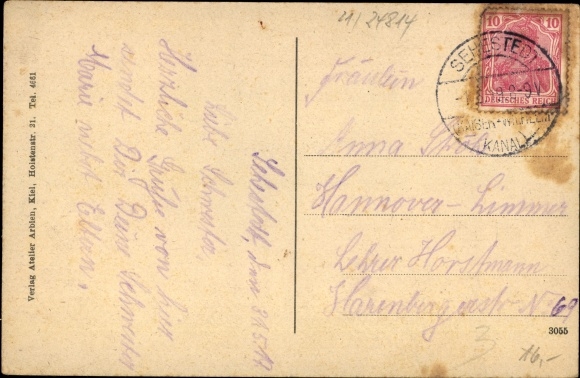 11/24814
10 10
DEUTSCHES REICH
SEHESTEDT
(KAISER-WILHELM-
KANAL)
Sehestedt, den 31.5.17
Liebe Schwester
Herzliche Grüße von hier
sendet Dir Deine Schwester
Marie nebst Eltern.
Fräulein
Anna
Hannover-Limmer
Lehrer Horstmann
Harenbergerstr No 69
Verlag Atelier Arbien, Kiel, Holstenstr. 21. Tel. 4661
3055
3
16,-